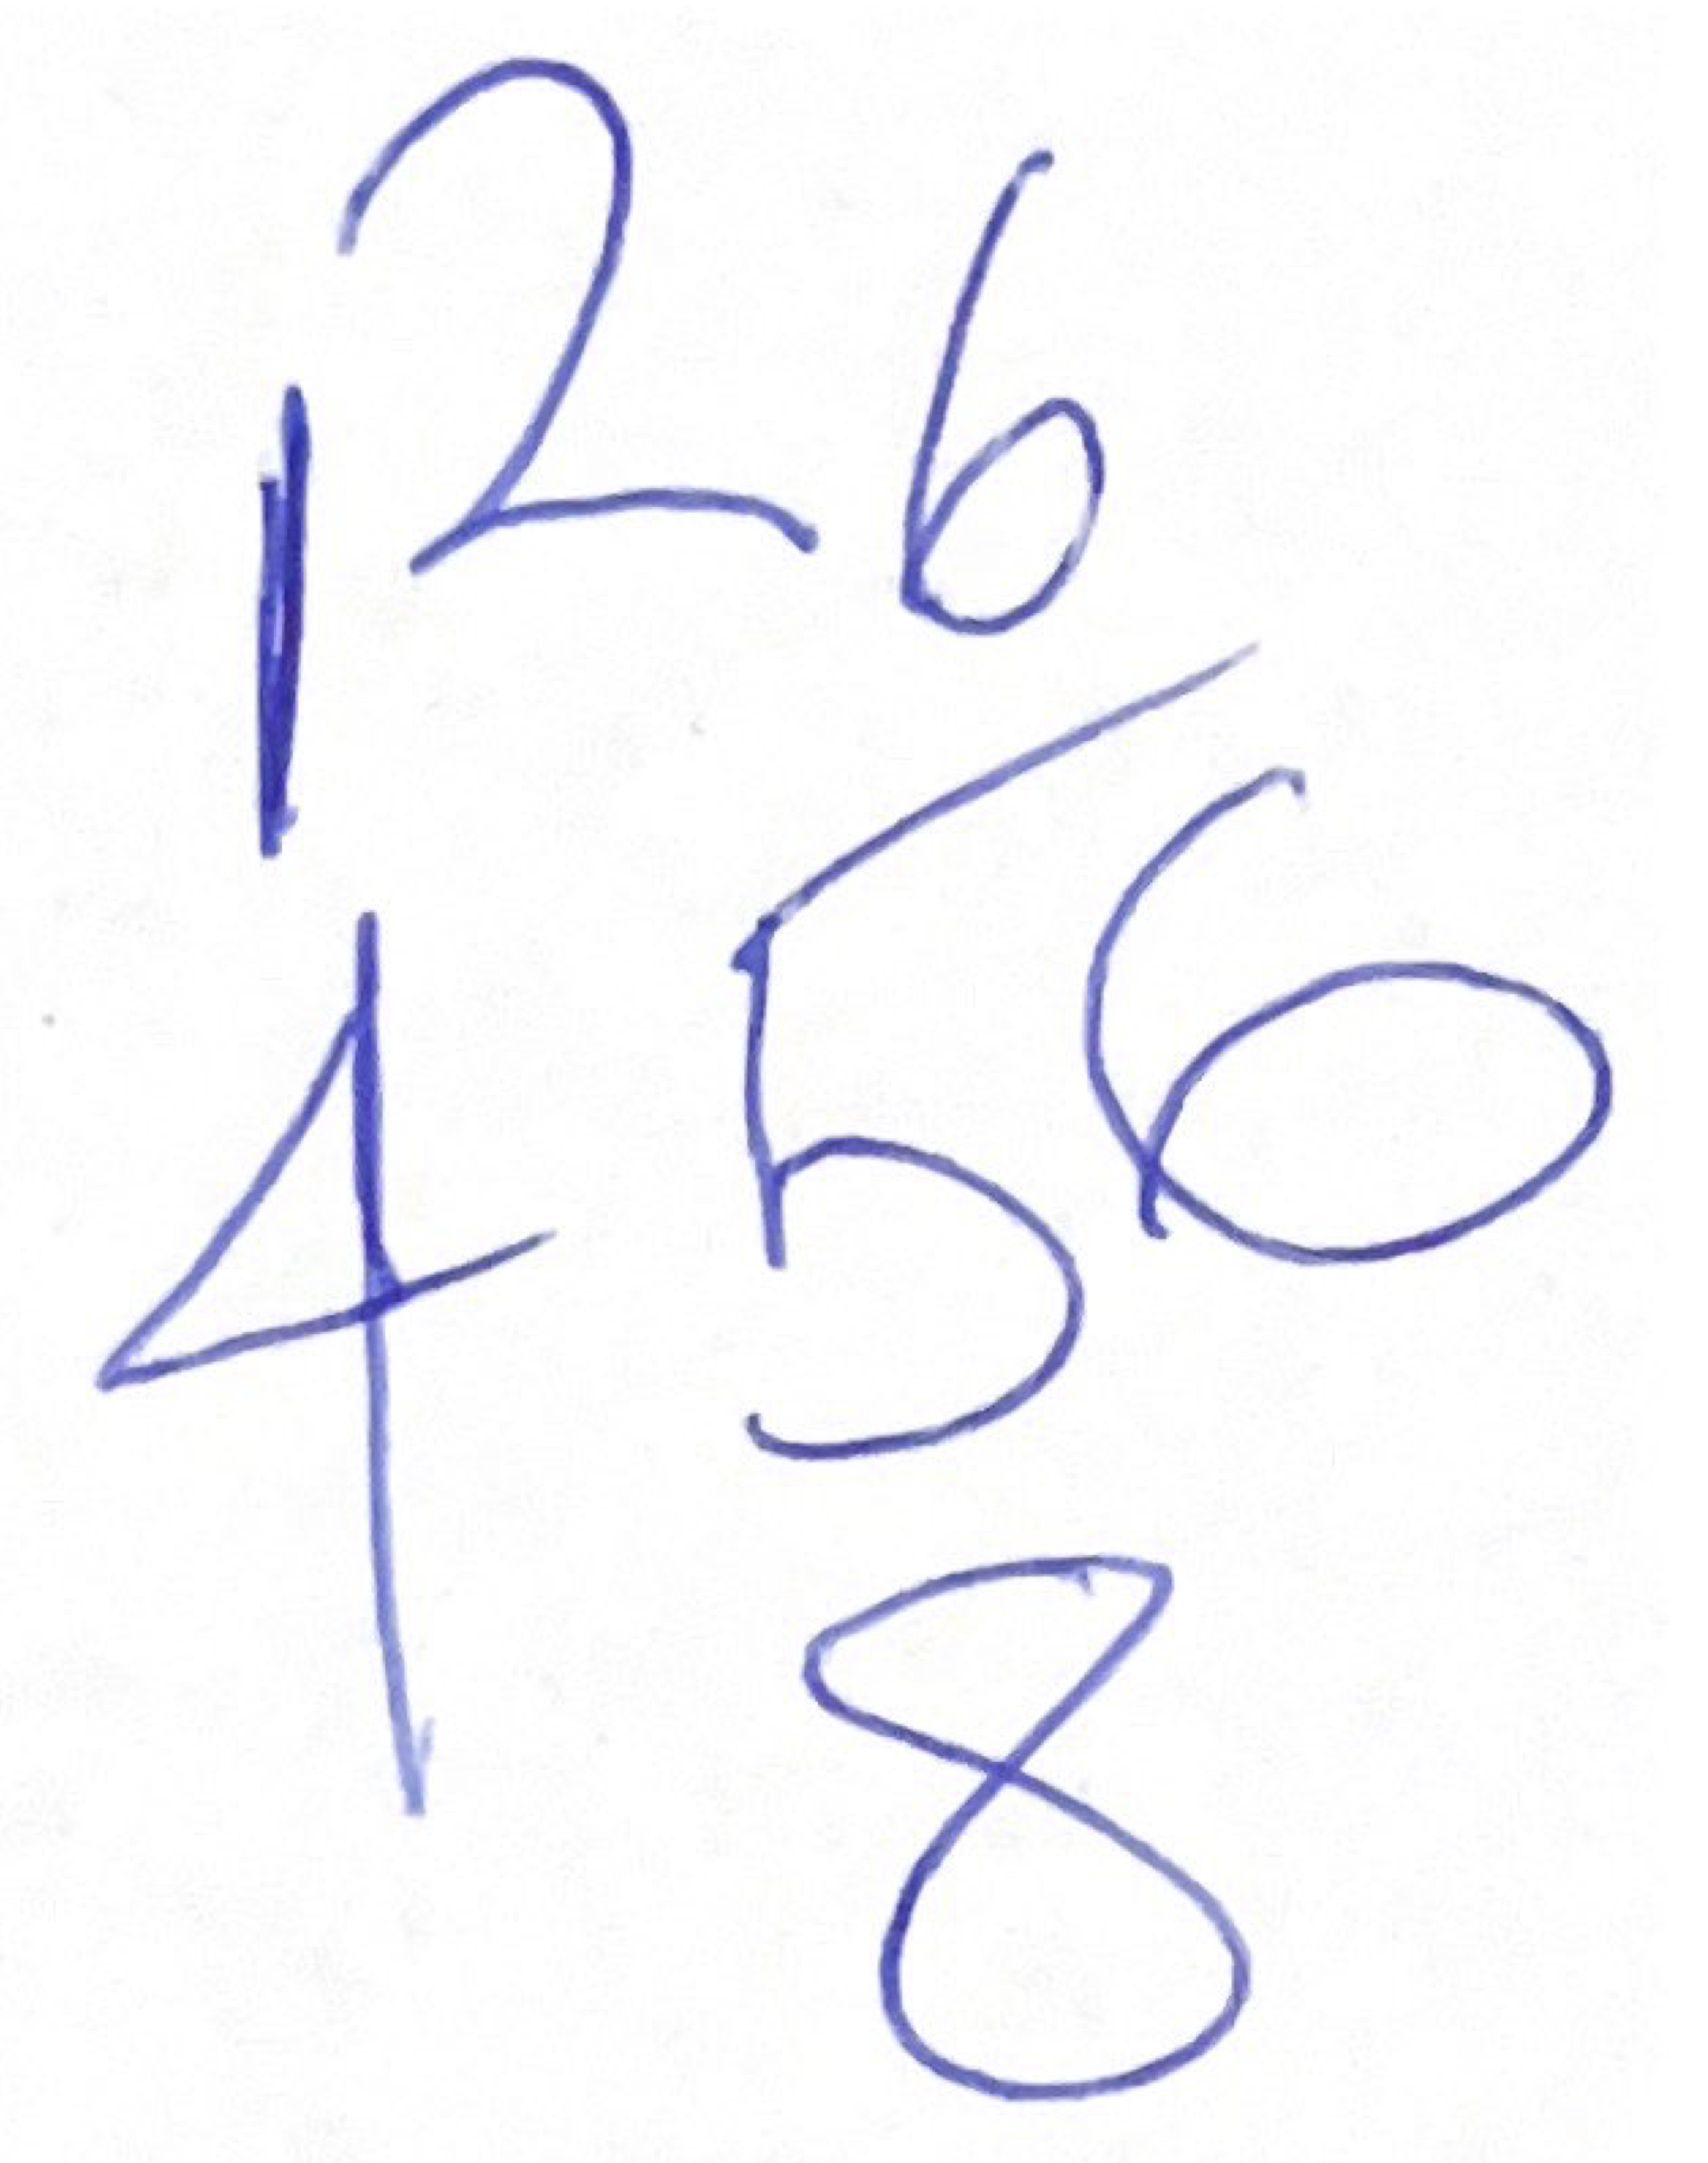 126
456
8